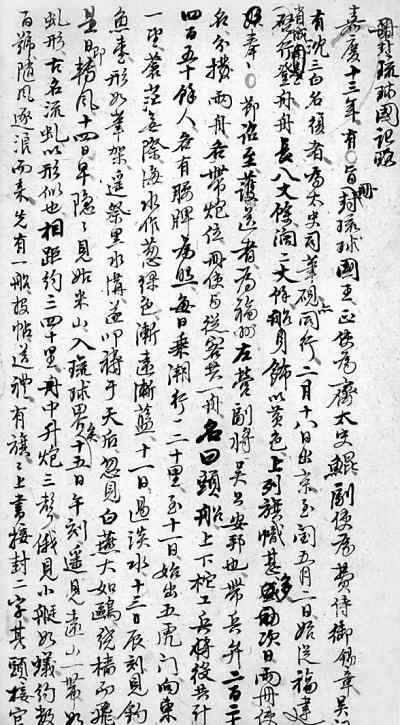 冊封琉球國記略
嘉慶十三年有○旨冊封琉球國王正使為齊太史鯤副使為費侍御錫章吳
有沈三白名復者為太史司筆硯同行二月十八日出京至閩五月二日始從福建
登舟舟長八丈餘濶二丈餘船身飾以黃色上列旗幟甚多次日兩冊使
奉○節詔至護送者為福州左營副將吳公安邦也帶兵弁二百二
名分撥兩舟各帶炮位冊使與從客共一舟名曰頭船上下柁工兵將後共計
四百五十餘人各有腰牌為照每日乘潮行一二十里至十一日始出五虎門向東
一望蒼茫無際海水作蔥綠色漸遠漸藍十一日過淡水十三日辰刻見釣
魚臺形如筆架遙祭黑水溝遂叩禱于天后忽見白燕大如鷗繞檣而飛
是日即轉風十四日早隱隱見姑米山入琉球界矣十五日午刻遙見遠山一帶如
虬形古名流虬以形似也相距約三四十里舟中升炮三聲俄見小艇如蟻約數
百號隨風逐浪而來先有一船投帖送禮有旗旗上書接封二字其頭接官